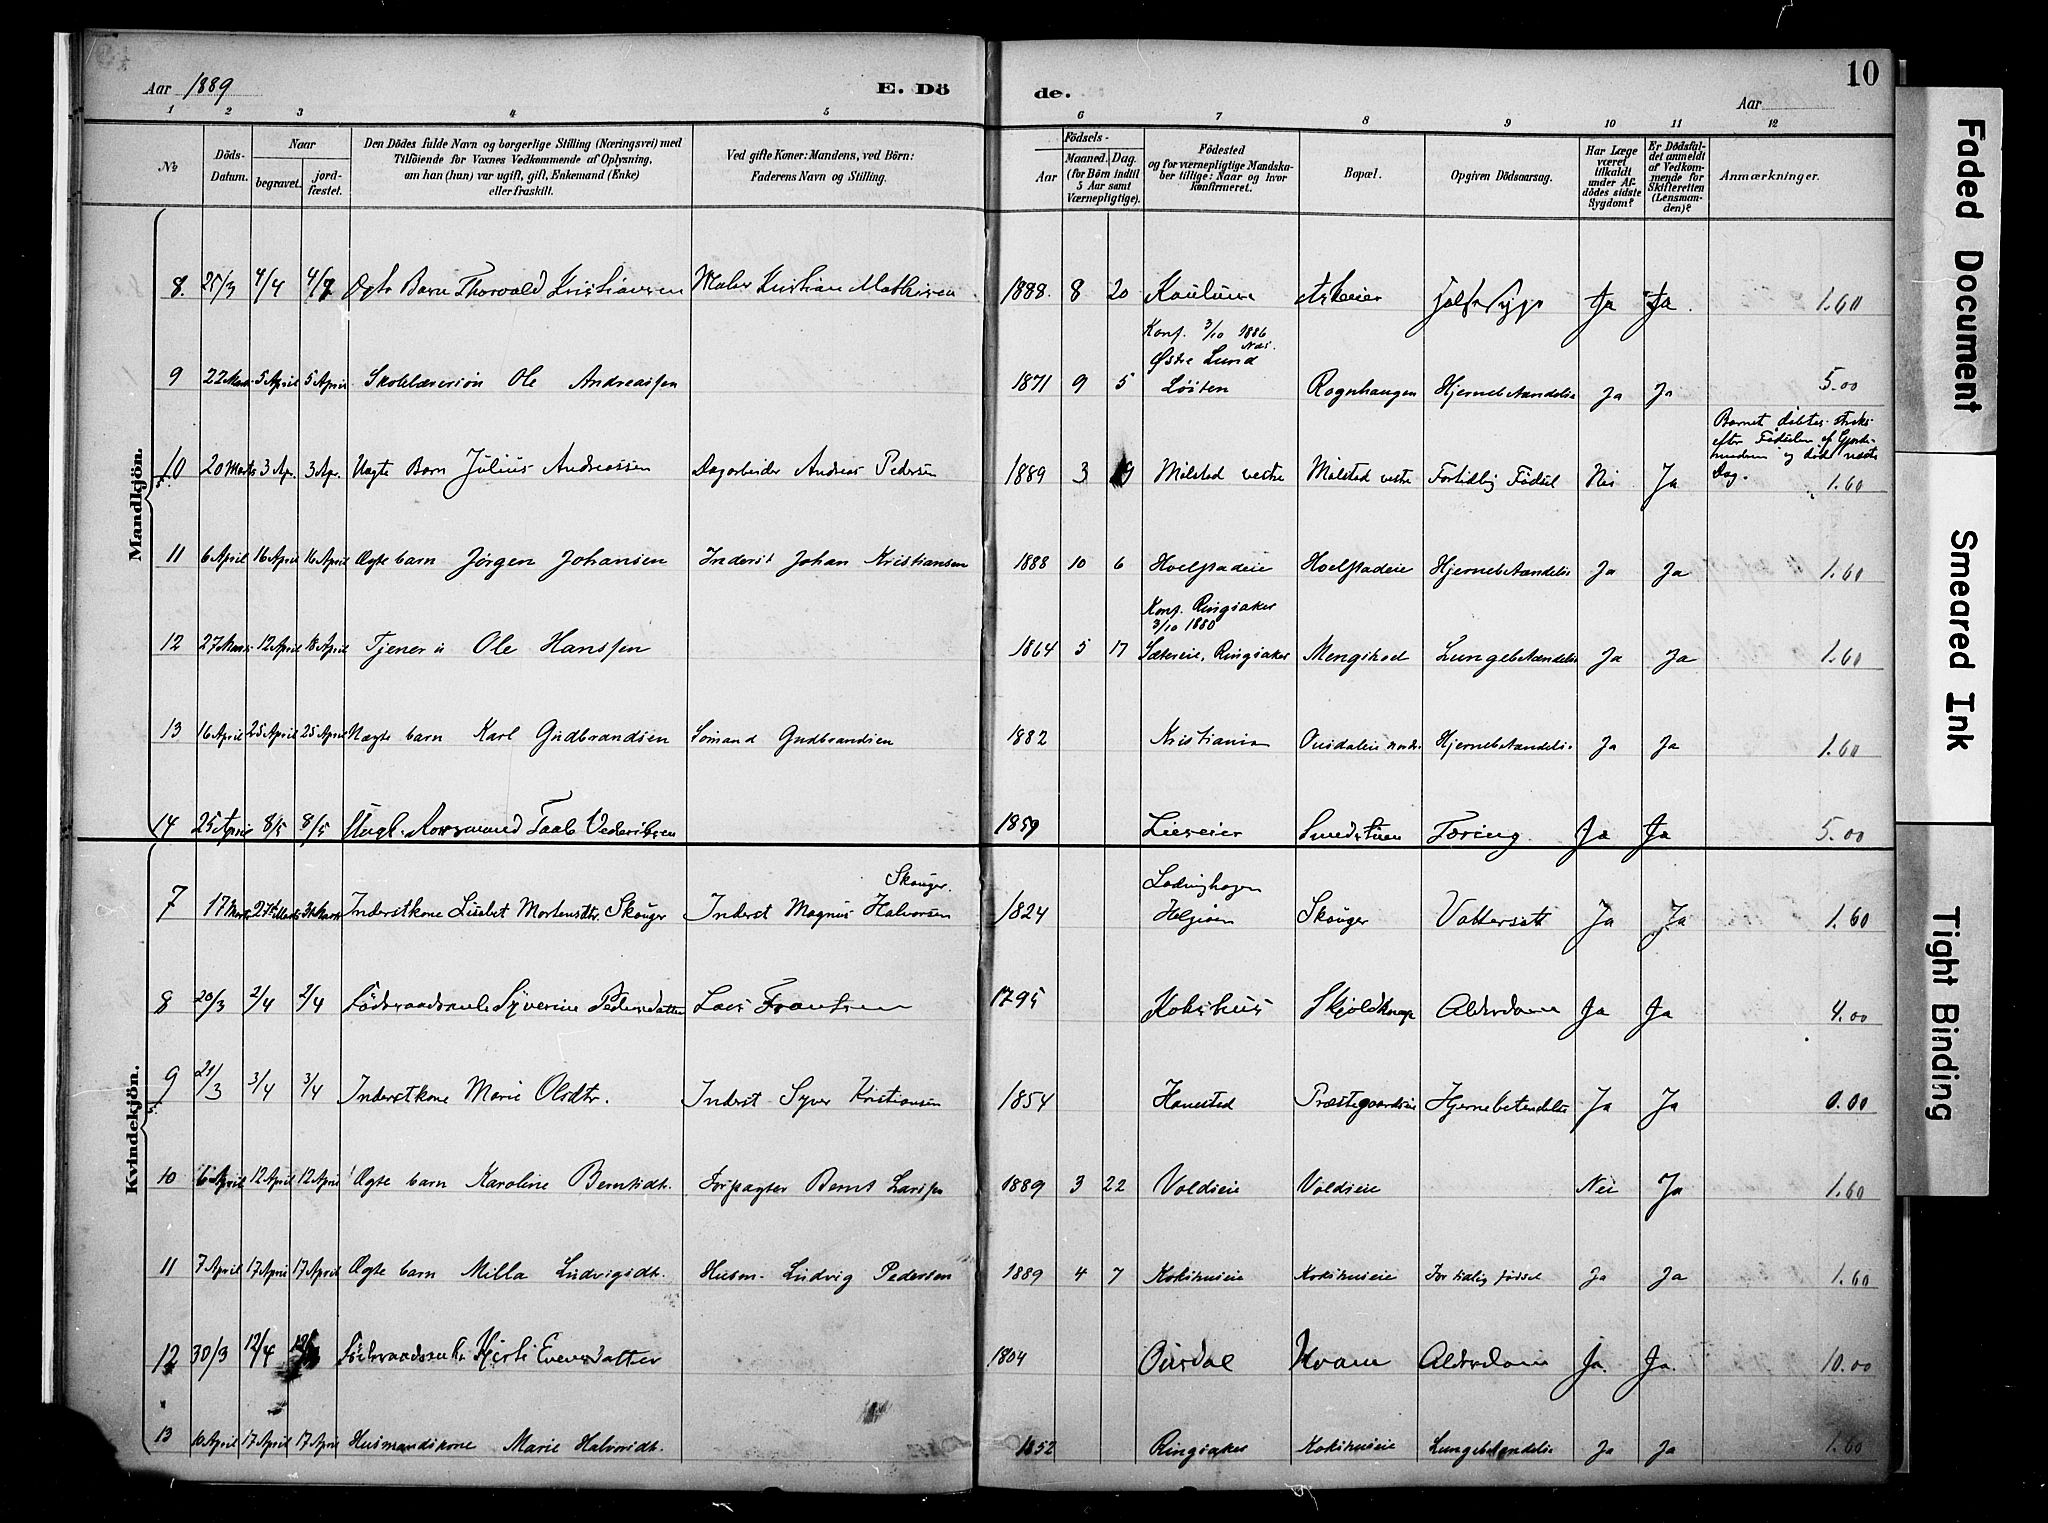 Aar 1889 E. Dö de. Aar 10
1 2 3 4 5 6 7 8 9 10 11 12
No Döds-Datum. Naar begravet. jord-fæstet. Den Dödes fulde Navn og borgerlige Stilling (Næringsvei) med Tilföiende for Voxnes Vedkommende af Oplysning, om han (hun) var ugift, gift, Enkemand (Enke) eller fraskilt. Ved gifte Koner: Mandens, ved Börn: Faderens Navn og Stilling. Födsels- Aar Maaned. Dag. (for Börn indtil 5 Aar samt Værnepligtige). Födested og for værnepligtige Mandskaber tillige: Naar og hvor konfirmeret. Bopæl. Opgiven Dödsaarsag. Har Læge været tilkaldt under Afdödes sidste Sygdom? Er Dödsfaldet anmeldt af Vedkommende for Skifteretten (Lensmanden)? Anmærkninger.
Mandkjön.
8. 25/3 4/4 4/4 Ægte Barn Thorvald Kristiansen Maler Kristian Mathisen 1888. 8 20 Ja Ja. 1.60
Konf. 3/10 1886 Næs.
Østre Lund
9 22 Marts 5 April 5 April Skolelærersøn Ole Andreassen 1871 9 5 Løiten Rognhaugen Hjernebetændelse Ja Ja 5.00
Barnet døbtes straks
efter Fødselen af Gjorde-
moderen og døde næste
10 20 Marts 3 Apr. 3 Apr. Uægte Barn Julius Andreassen Dagarbeider Andreas Pedersen 1889 3 19 Målstad vestre Målstad vestre Fortidlig Fødsel Nei Ja Dag. 1.60
11 6 April 16 April 16 April Ægte barn Jørgen Johansen Inderst Johan Kristiansen 1888 10 6 Hjernebetændelse Ja Ja 1.60
Konf. Ringsaker
3/10 1880
12 27 Marts 12 April April Tjener Ole Hanssen 1864 5 17 Sætereie, Ringsaker Mengshoel Lungebetændelse Ja Ja 1.60
13 16 April 25 April 25 April Uægte barn Karl Gudbrandsen Sømand Gudbrandsen 1882 Kristiania Hjernebetændelse Ja Ja 1.60
14 25 April 8/5 8/5 1859 Lieseier Smedstuen Tæring. Ja Ja 5.00
Kvindekjön.
Skouger.
Ladinghagen
7 17 Marts 27 Marts Marts Inderstkone Lisabet Mortensdtr. Skouger Inderst Magnus Halvorsen 1824 Helgøen Skouger Vattersott Ja Ja 1.60
8 20/3 2/4 2/4 Syverine Pedersdatter Lars Frantsen 1795 Kokshus Alderdom Ja Ja 4.00
9 21/3 3/4 3/4 Inderstkone Marie Olsdtr. Inderst Syver Kristiansen 1854 Hanestad Præstegaardseie Hjernebetændelse Ja Ja 0.00
10 6 April 12 April 12 April Ægte barn Karoline Berntsdt. Forpagter Bernt Larssen 1889 3 22 Voldseie Voldseie Nei Ja 1.60
11 7 April 17 April 17 April Ægte barn Milla Ludvigsdt. Husm. Ludvig Pedersen 1889 4 7 Kokshuseie Kokshuseie For tidlig fødsel Ja Ja 1.60
12 30/3 12/4 Kjersti Evensdatter 1804 Ousdal Hvam Alderdom Ja. Ja. 10.00
13 April 17 April 17 April Husmandskone Marie Halvorsdt. 1852 Ringsaker Kokshuseie Lungebetændelse Ja Ja 1.60
Faded Document
Smeared Ink
Tight Binding